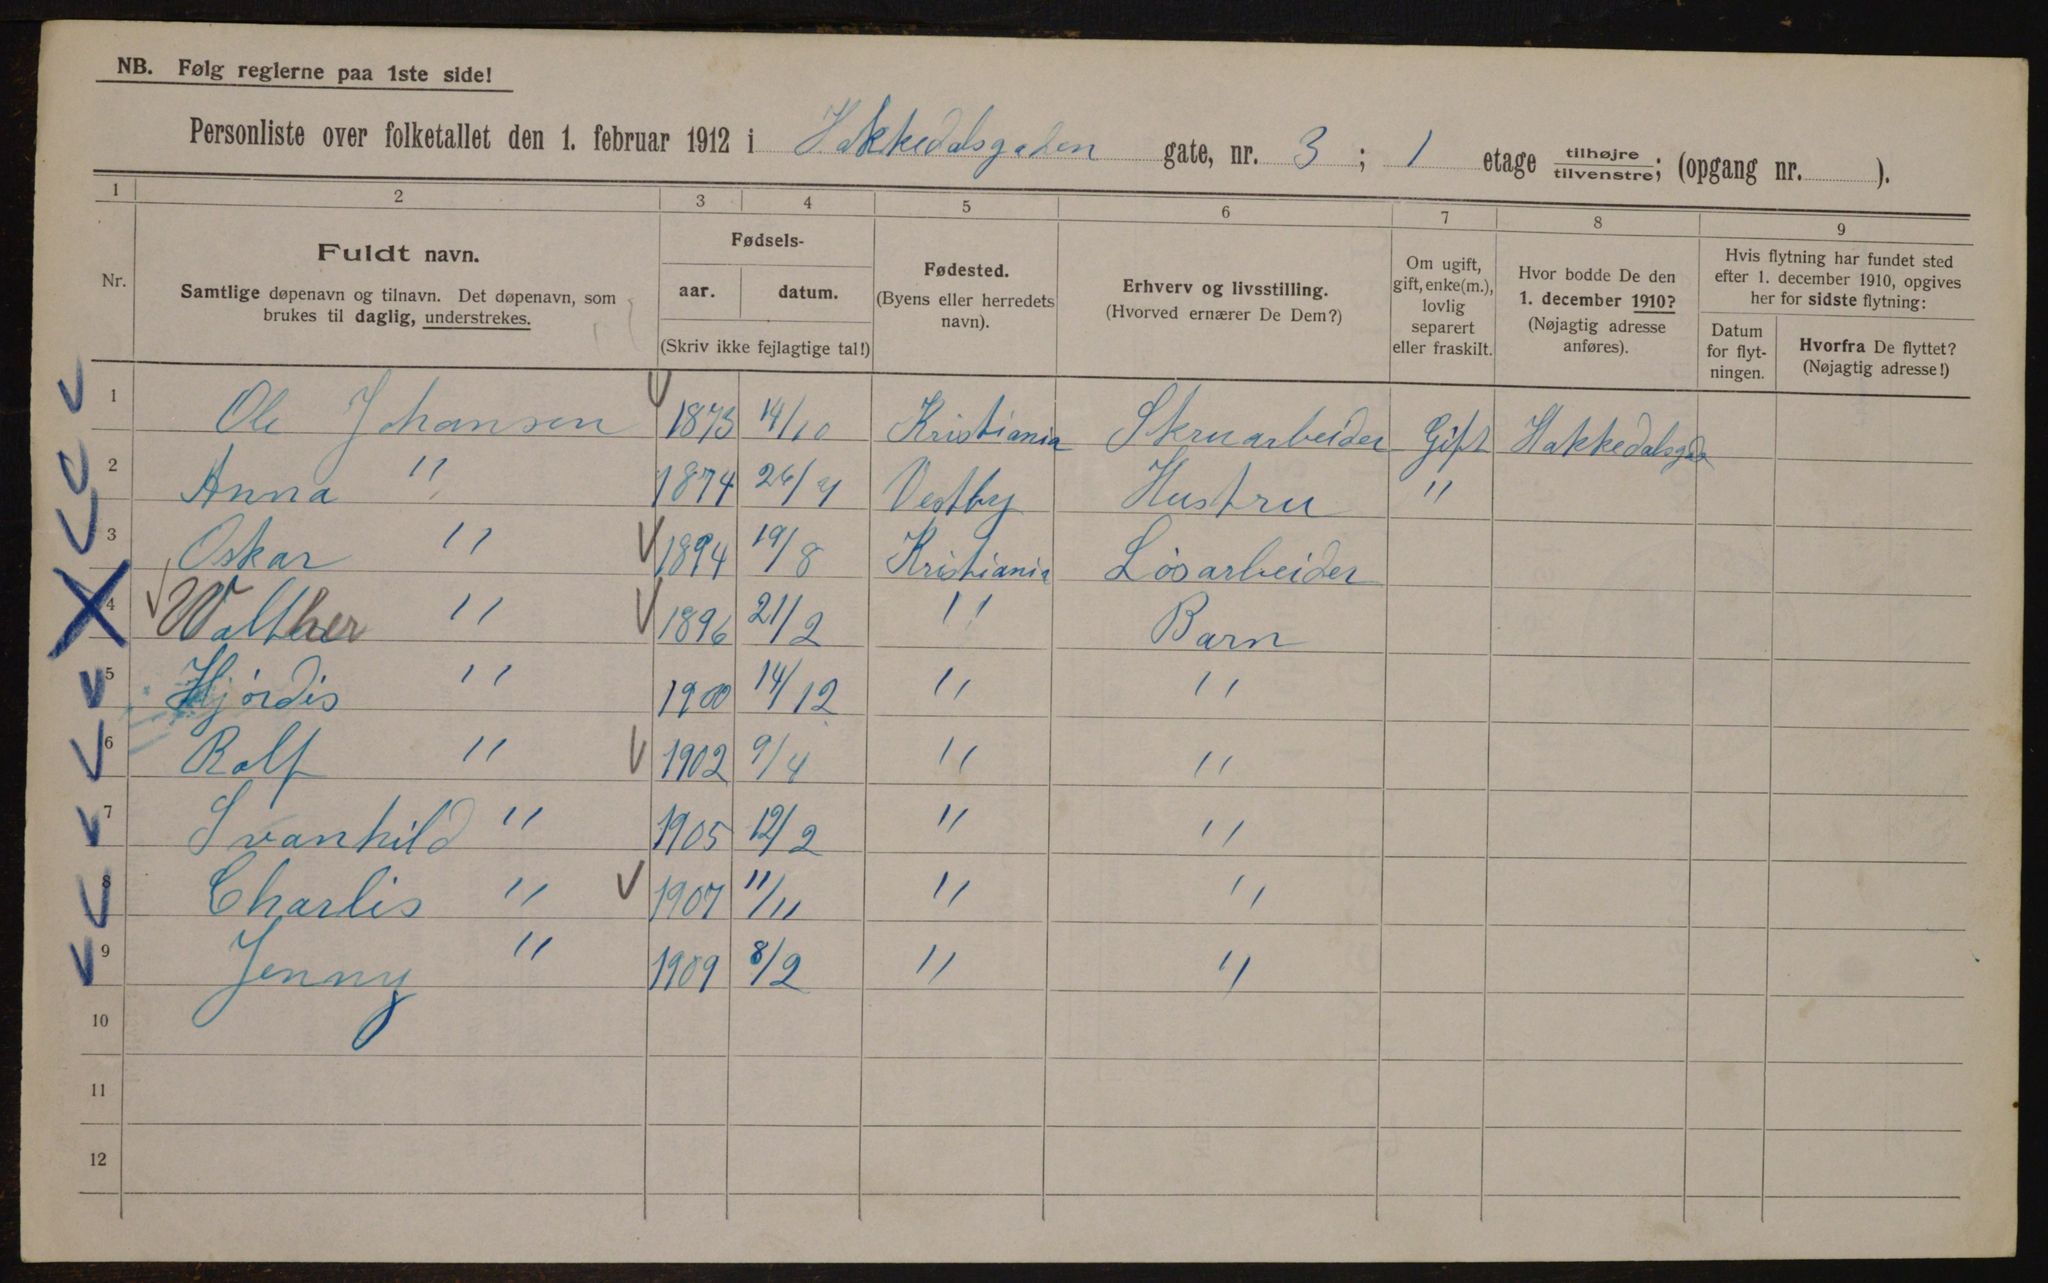 NB. Følg reglerne paa 1ste side!
Personliste over folketallet den 1. februar 1912 i Hakkedalsgaden gate, nr. 3 ; 1 etage tilhøjre tilvenstre; (opgang nr. ).
1 2 3 4 5 6 7 8 9
Nr.
Fuldt navn.
Samtlige døpenavn og tilnavn. Det døpenavn, som
brukes til daglig, understrekes.
Fødsels-
aar. datum.
(Skriv ikke fejlagtige tal!)
Fødested.
(Byens eller herredets
navn).
Erhverv og livsstilling.
(Hvorved ernærer De Dem?)
Om ugift,
gift, enke(m.),
lovlig
separert
eller fraskilt.
Hvor bodde De den
1. december 1910?
(Nøjagtig adresse
anføres).
Hvis flytning har fundet sted
efter 1. december 1910, opgives
her for sidste flytning:
Datum
for flyt-
ningen.
Hvorfra De flyttet?
(Nøjagtig adresse!)
1 Ole Johansen 1873 14/10 Kristiania Skruarbeider Gift Hakkedalsgda
2 Anna " 1874 26/4 Vestby Hustru "
3 Oskar " 1894 19/8 Kristiania Løsarbeider
4 Walther " 1896 21/2 " Barn
5 Hjørdis " 1900 14/12 " "
6 Rolf " 1902 9/4 " "
7 Svanhild " 1905 12/2 " "
8 Charlis " 1907 11/11 " "
9 Jenny " 1909 8/2 " "
10
11
12